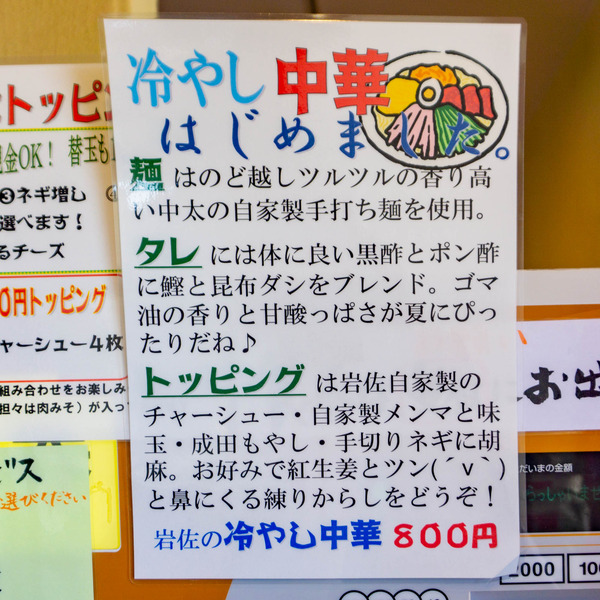 冷やし中華
はじめました。
麺はのど越しツルツルの香り高
い中太の自家製手打ち麺を使用。
タレには体に良い黒酢とポン酢
に鰹と昆布ダシをブレンド。ゴマ
油の香りと甘酸っぱさが夏にぴっ
たりだね♪
トッピングは岩佐自家製の
チャーシュー・自家製メンマと味
玉・成田もやし・手切りネギに胡
麻。お好みで紅生姜とツン(´v`)
と鼻にくる練りからしをどうぞ!
岩佐の冷やし中華 800円
トッピン
金OK! 替玉も
③ネギ増し
選べます!
るチーズ
0円トッピング
ャーシュー4枚
組み合わせをお楽しみ
担々は肉みそ)が入っ
ビス
選びください
お出
だいまの金額
2000